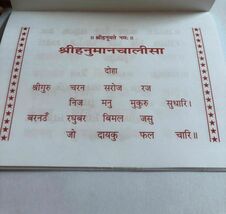 ॥ श्रीहनुमते नमः ॥
श्रीहनुमानचालीसा
दोहा
श्रीगुरु चरन सरोज रज
निज मनु मुकुरु सुधारि।
बरनउँ रघुबर बिमल जसु
जो दायकु फल चारि॥